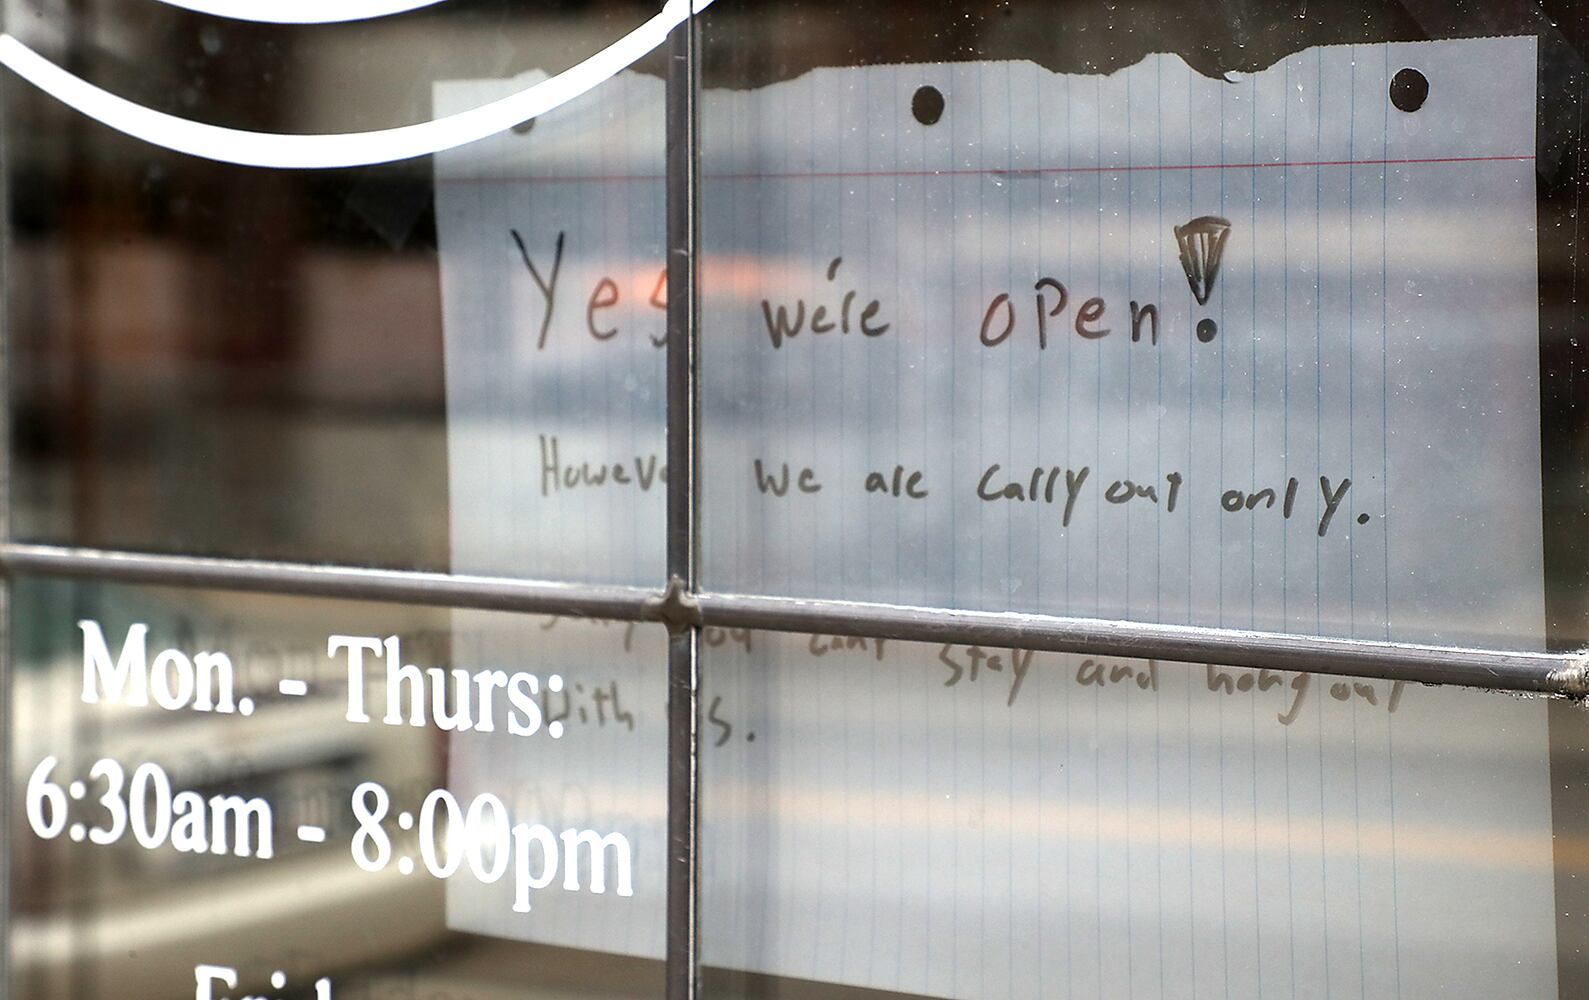 Yes we're open!
However we are carry out only.
Sorry you cant stay and hang out
with us.
Mon. - Thurs:
6:30am - 8:00pm